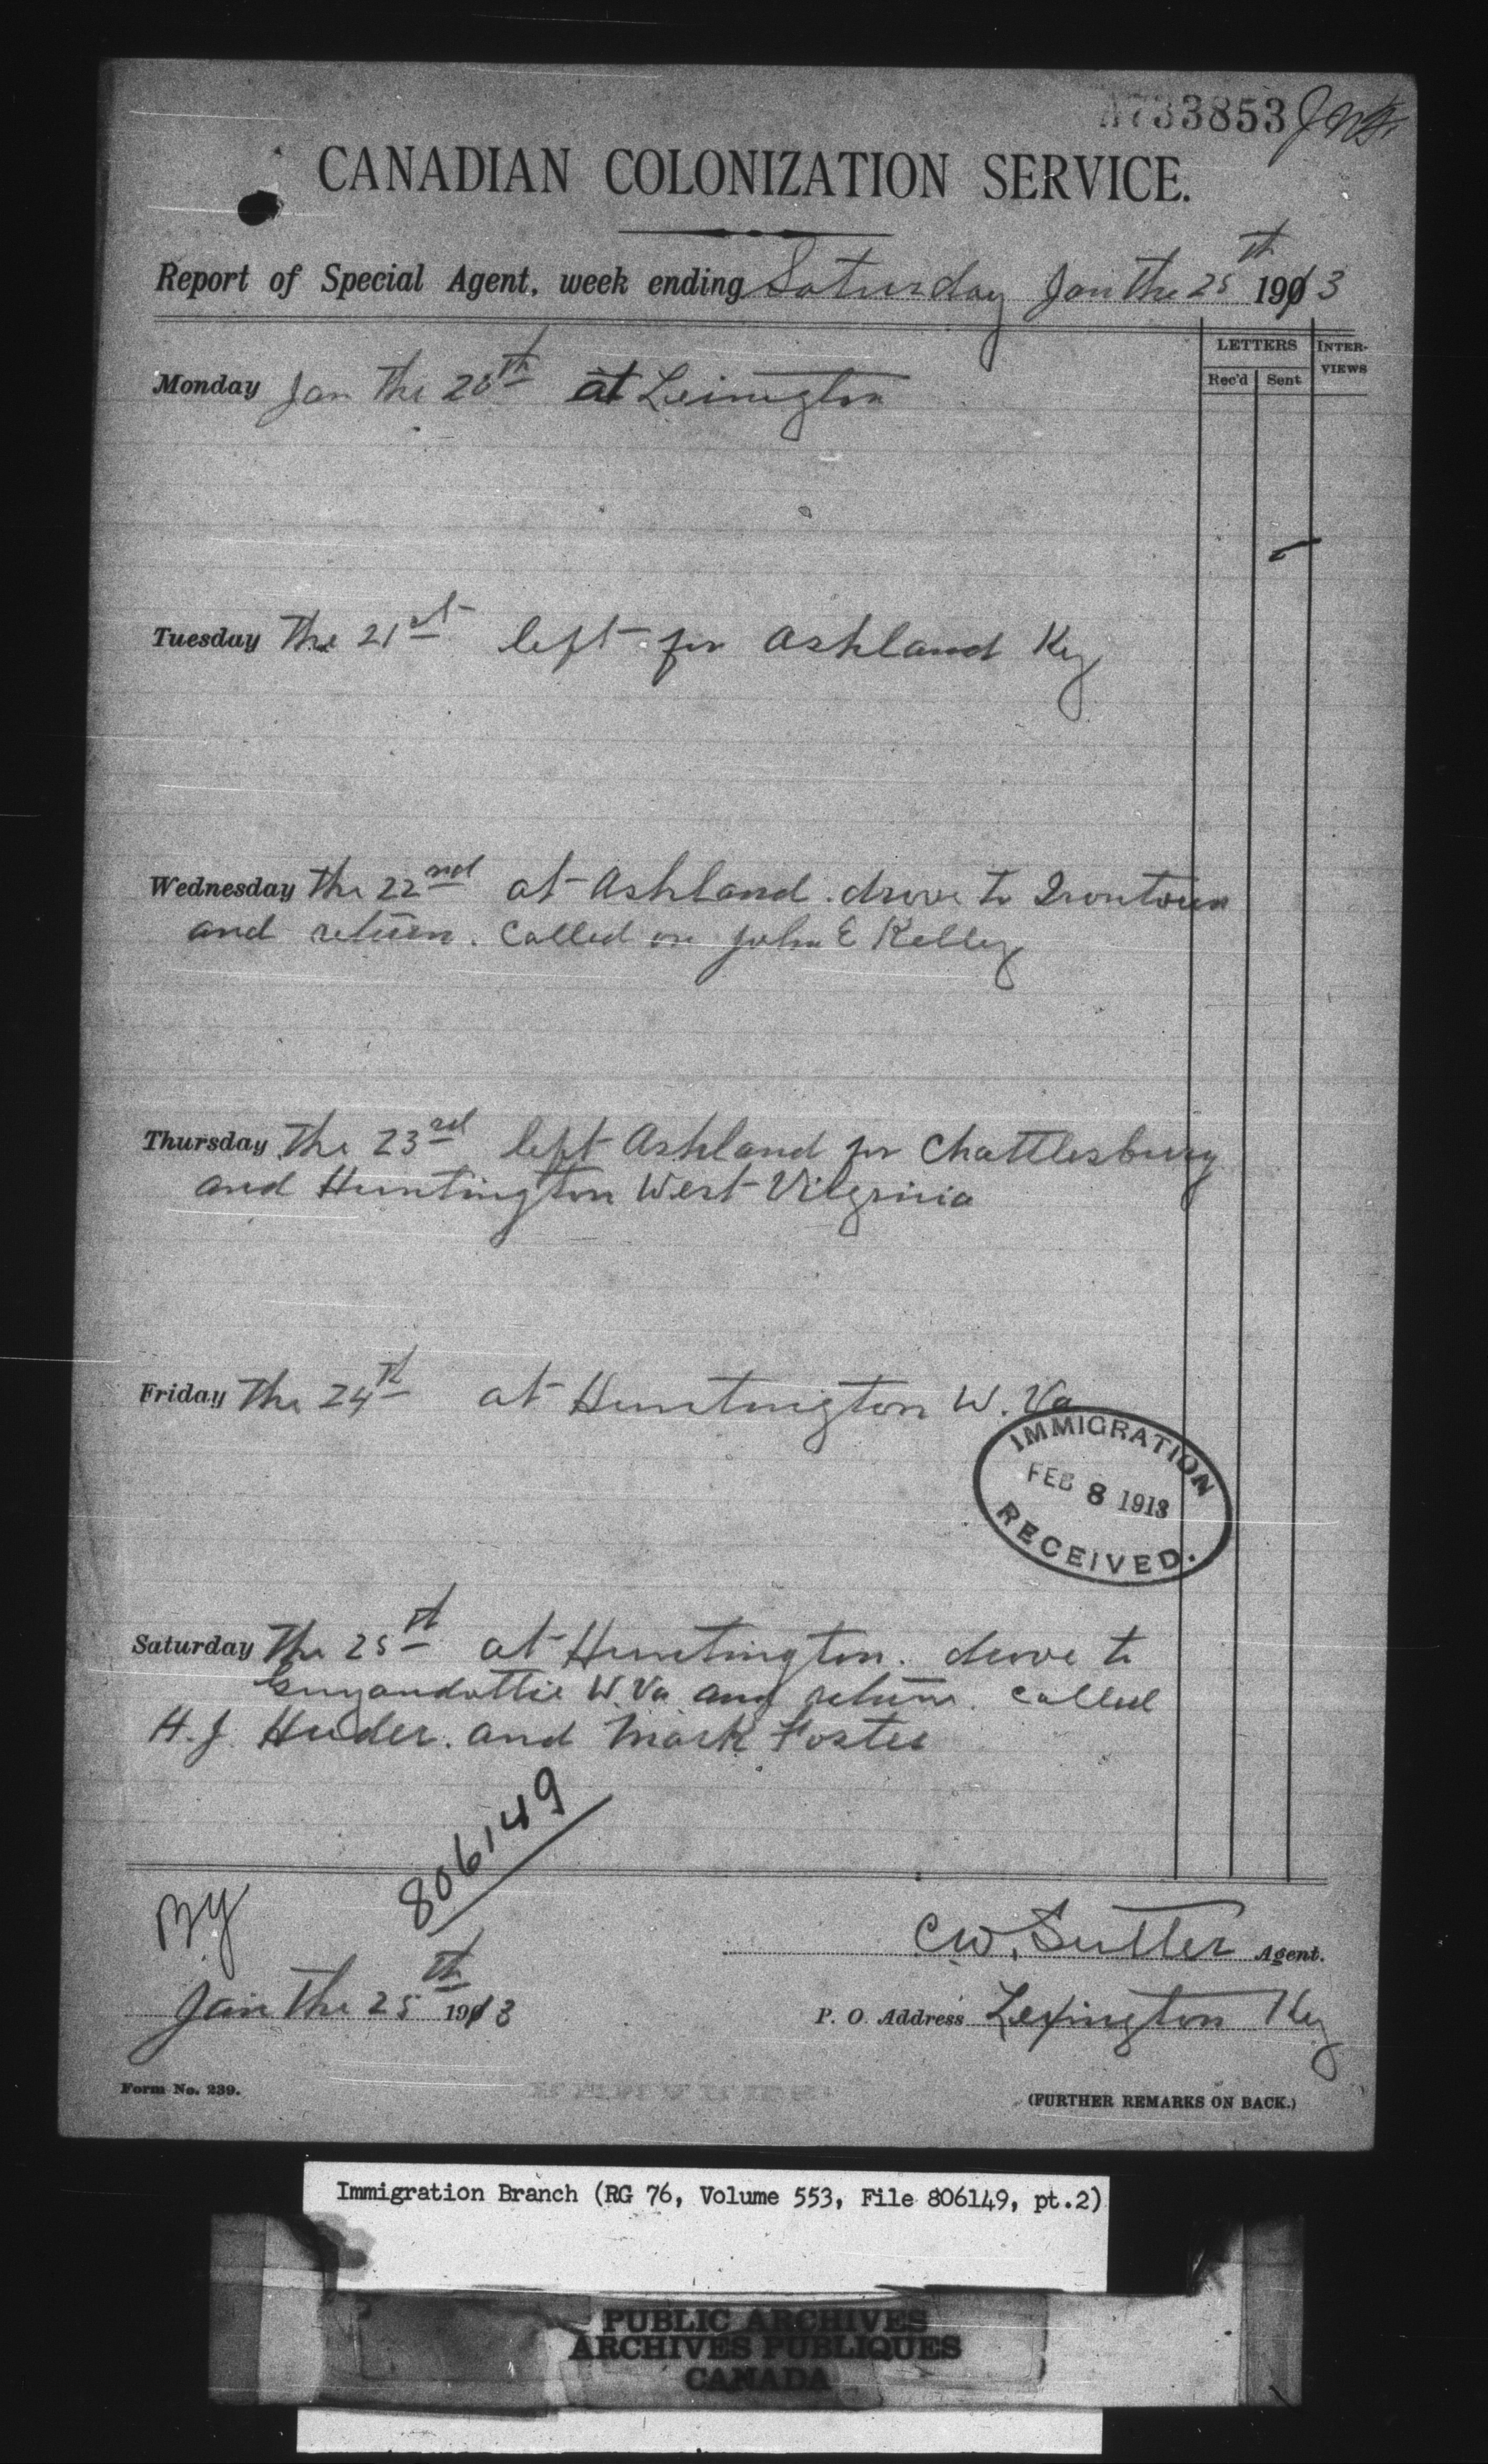 A733853
CANADIAN COLONIZATION SERVICE.
Report of Special Agent, week ending Saturday Jan the 25th 1913
LETTERS INTER-VIEWS
Rec'd Sent
Monday Jan the 20th at Leinington
Tuesday The 21st left for Ashland Ky
Wednesday the 22nd at Ashland. drove to Irontown
and return. Called on John E Kelley
Thursday The 23rd left Ashland for Chattlesburg
and Huntington West Vilgrinia
Friday The 24th at Huntington W. Va
IMMIGRATION
FEB 8 1913
RECEIVED.
Saturday The 25th at Huntington. drove to
Guyandottie W. Va and return. Called
H. J. Huder. and Mark Foster
806149
By
C.W. Sutter Agent.
Jan the 25th 1913
P. O. Address Lexington Ky
Form No. 239.
(FURTHER REMARKS ON BACK.)
Immigration Branch (RG 76, Volume 553, File 806149, pt.2)
PUBLIC ARCHIVES
ARCHIVES PUBLIQUES
CANADA